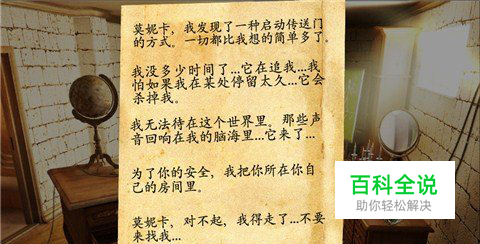 莫妮卡，我发现了一种启动传送门
的方式。一切都比我想的简单多了。
我没多少时间了...它在追我...我
怕如果我在某处停留太久...它会
杀掉我。
我无法待在这个世界里。那些声
音回响在我的脑海里...它来了...
为了你的安全，我把你所在你自
己的房间里。
莫妮卡，对不起，我得走了...不要
来找我...
百科全说
助你轻松解决